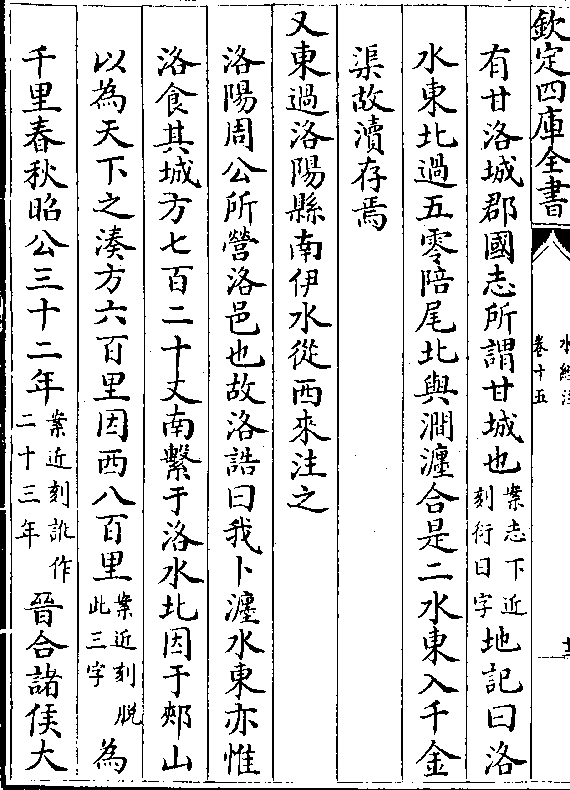 欽定四庫全書
水經注
卷十五
有甘洛城郡國志所謂甘城也案志下近刻衍曰字地記曰洛
水東北過五零陪尾北與澗瀍合是二水東入千金
渠故瀆存焉
又東過洛陽縣南伊水從西來注之
洛陽周公所營洛邑也故洛誥曰我卜瀍水東亦惟
洛食其城方七百二十丈南繫于洛水北因于郟山
以為天下之湊方六百里因西八百里案近刻脫此三字為
千里春秋昭公三十二年案近刻訛作二十三年晉合諸侯大